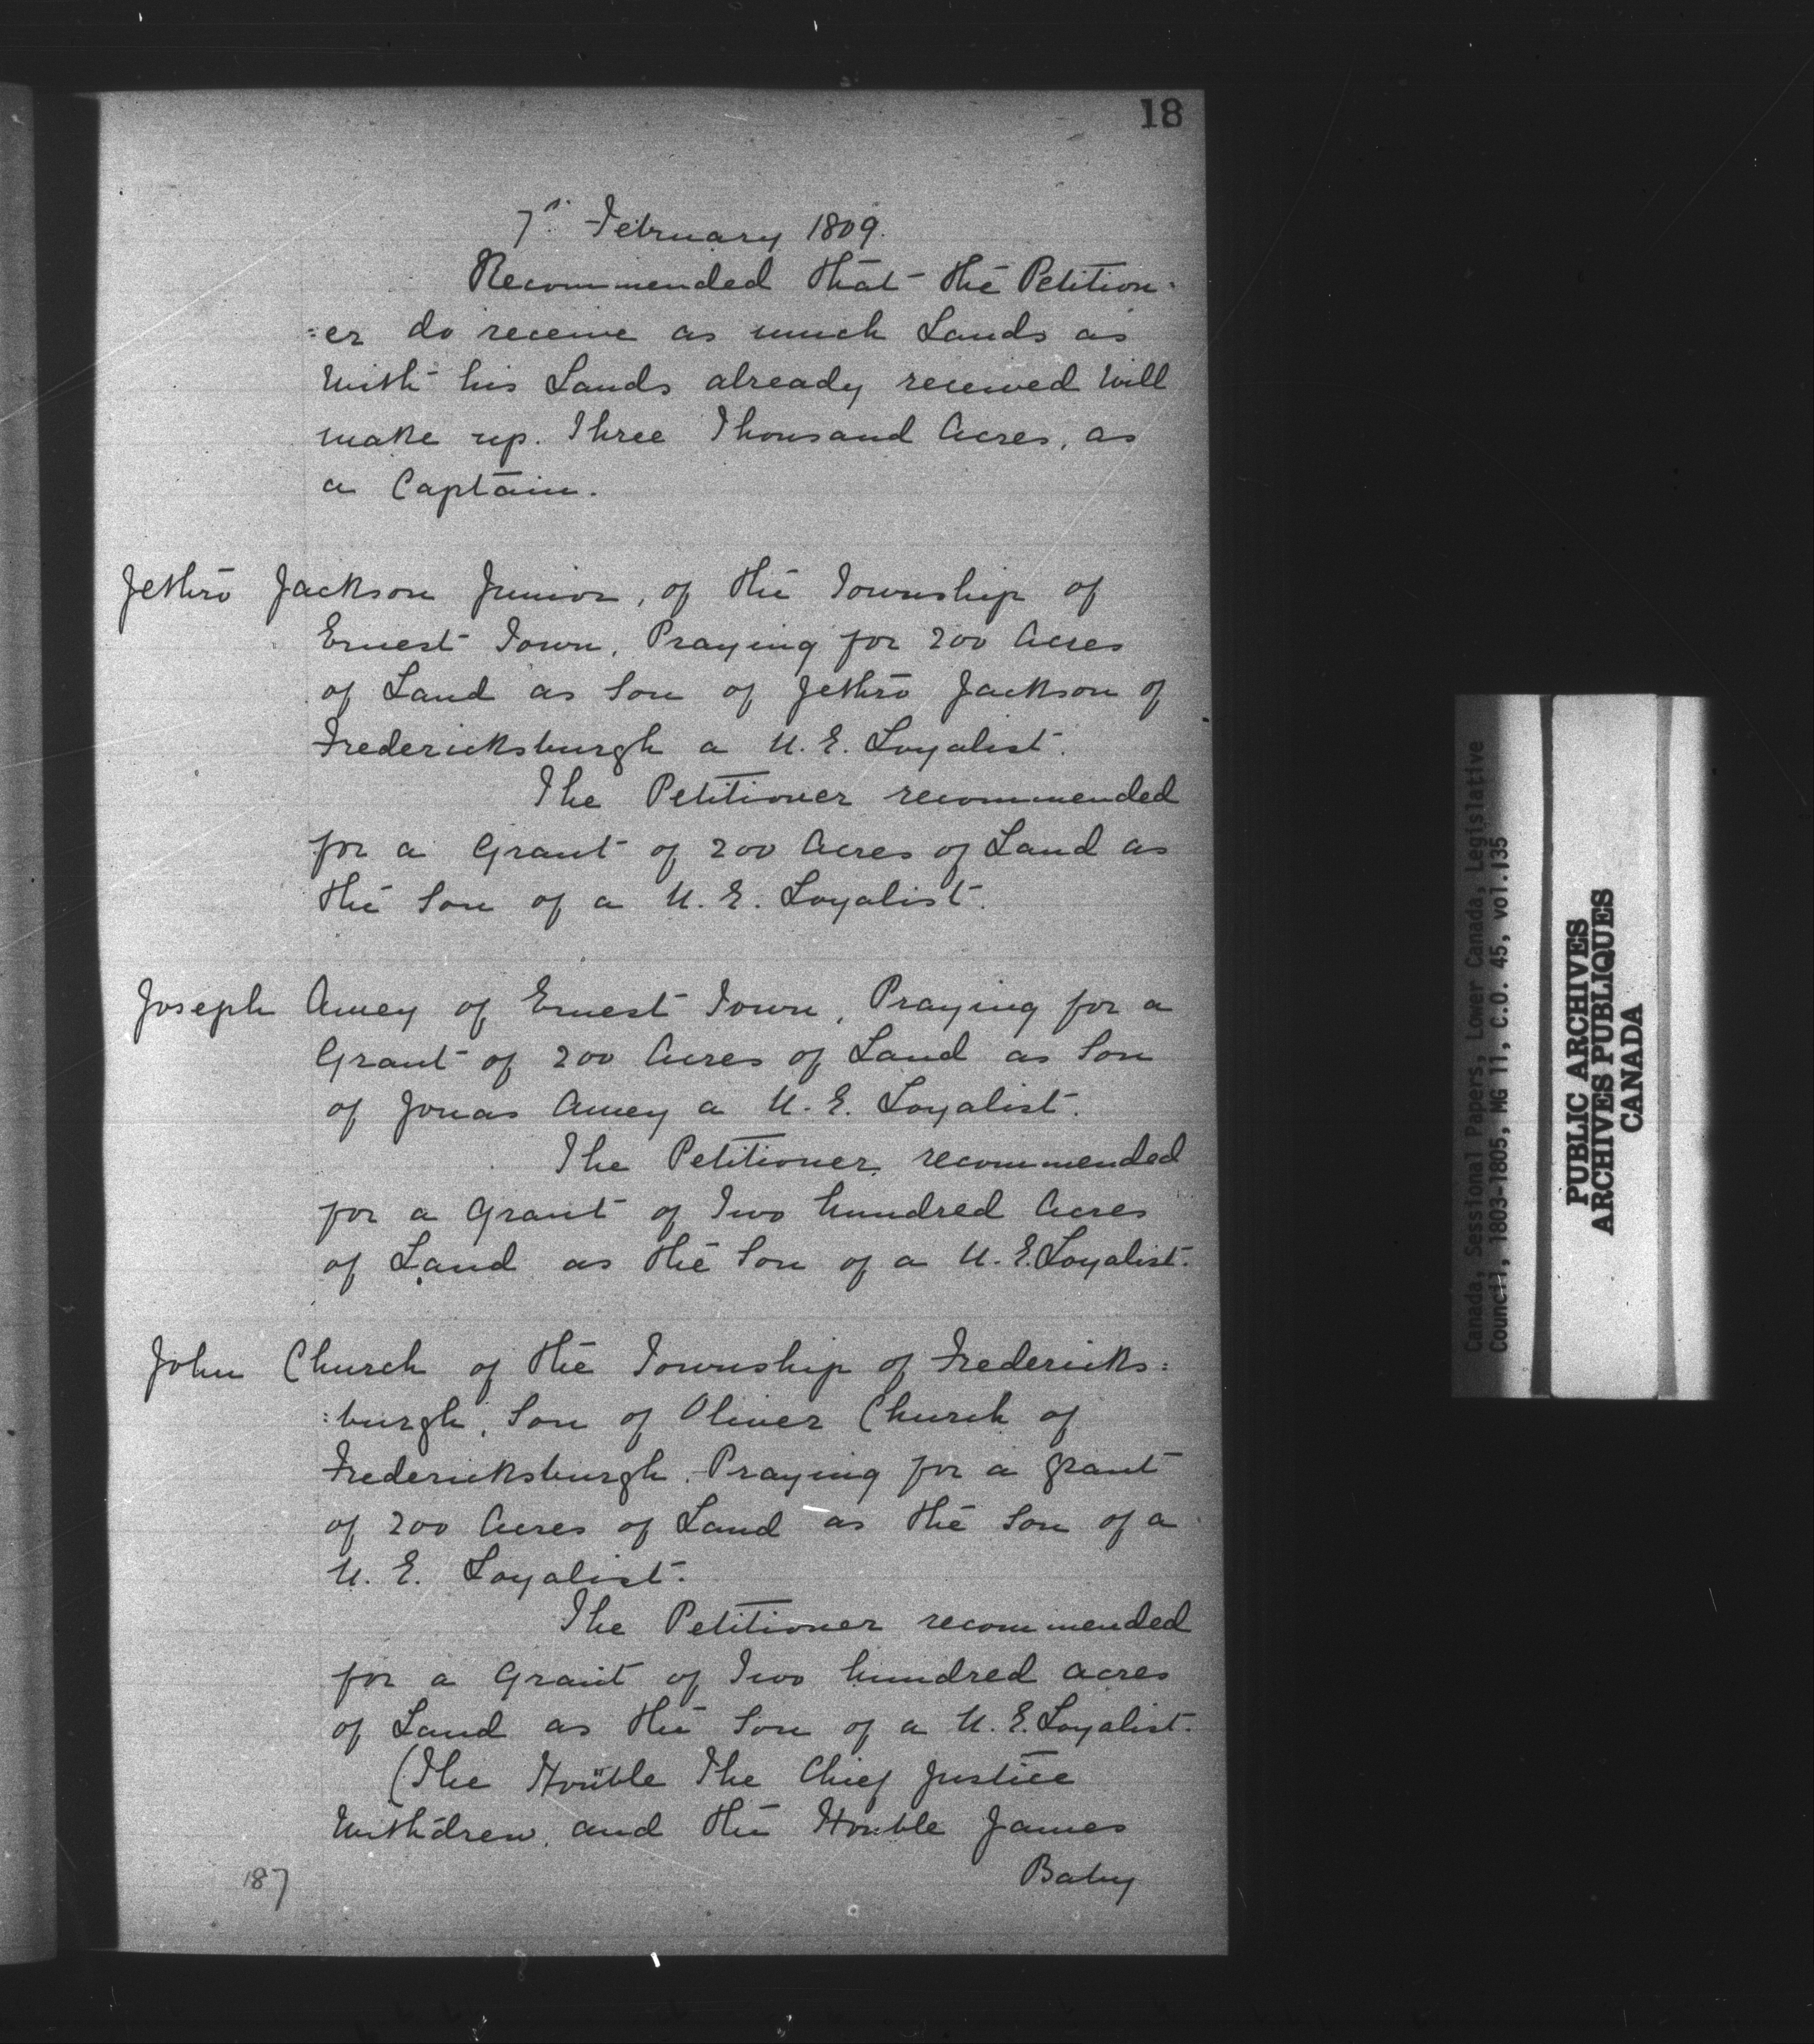 18
7th February 1809.
Recommended that the Petition-
:er do receive as much Lands as
with his Lands already received will
make up. Three Thousand Acres, as
a Captain.
Jethro Jackson Junior, of the Township of
Ernest Town, Praying for 200 Acres
of Land as Son of Jethro Jackson of
Fredericksburgh a U.E. Loyalist.
The Petitioner recommended
for a Grant of 200 Acres of Land as
the Son of a U.E. Loyalist.
Joseph Amey of Ernest Town, Praying for a
Grant of 200 Acres of Land as Son
of Jonas Amey a U.E. Loyalist.
The Petitioner recommended
for a Grant of Two hundred Acres
of Land as the Son of a U.E. Loyalist.
John Church of the Township of Fredericks:
:burgh, Son of Oliver Church of
Fredericksburgh. Praying for a grant
of 200 Acres of Land as the Son of a
U.E. Loyalist.
The Petitioner recommended
for a Grant of Two hundred acres
of Land as the Son of a U.E. Loyalist.
(The Honble The Chief Justice
withdrew, and the Honble James
Baby
187
Canada, Sessional Papers, Lower Canada, Legislative
Council, 1803-1805, MG 11, C.O. 45, vol.135
PUBLIC ARCHIVES
ARCHIVES PUBLIQUES
CANADA